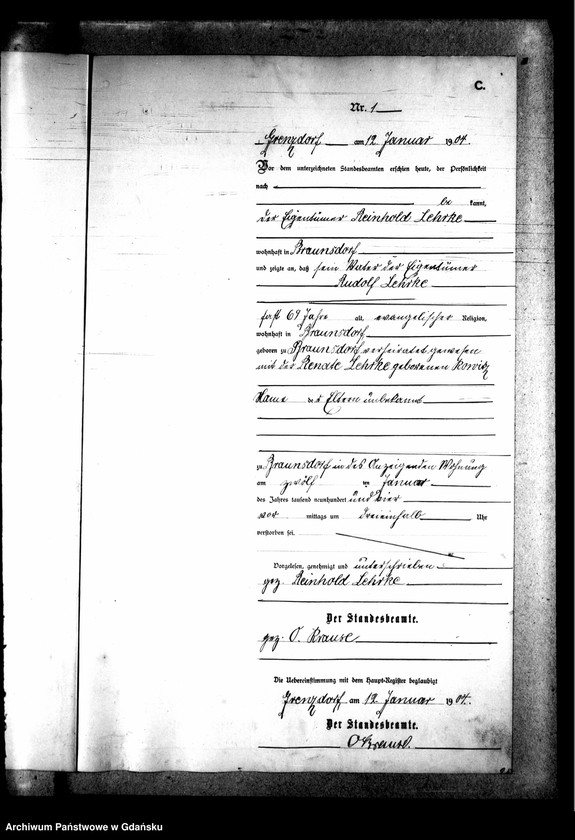 C.
Nr. 1
Grenzdorf am 12. Januar 1904.
Vor dem unterzeichneten Standesbeamten erschien heute, der Persönlichkeit
nach
be kannt,
der Eigentümer Reinhold Lehrke
wohnhaft in Braunsdorf
und zeigte an, daß sein Vater der Eigentümer
Rudolf Lehrke
fast 69 Jahre alt, evangelischer Religion,
wohnhaft in Braunsdorf
geboren zu Braunsdorf verheiratet gewesen
mit der Renate Lehrke geborenen
Name der Eltern unbekannt
zu Braunsdorf in des Anzeigenden Wohnung
am zwölf ten Januar
des Jahres tausend neunhundert und vier
vor mittags um dreieinhalb Uhr
verstorben sei.
Vorgelesen, genehmigt und unterschrieben
gez. Reinhold Lehrke
Der Standesbeamte.
gez. O. Krause
Die Uebereinstimmung mit dem Haupt-Register beglaubigt
Grenzdorf, am 12. Januar 1904.
Der Standesbeamte.
O Krause.
Archiwum Państwowe w Gdańsku